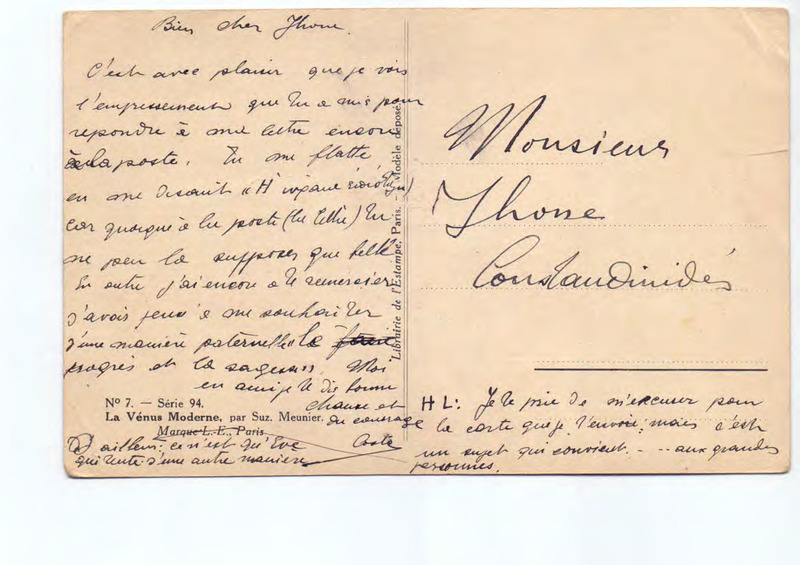 Bien cher Jhone.
C'est avec plaisir que je vois
l'empressement que tu a mis pour
repondre à me lettre encore
à la poste. Tu me flatte
en me disant «
car quoique à la poste (la lettre) tu
ne peu la supposer que belle
En outre j'ai encore a te remercier
d'une manière paternelle «le
progrès et la sagesse». Moi
en amie je te dis bonne
chance et
du courage
D'ailleurs, ce n'est qu'Eve
qui tente d'une autre manière
Nº 7. — Série 94.
La Vénus Moderne, par Suz. Meunier.
Marque L.-E., Paris
Librairie de l'Estampe, Paris. — Modèle déposé.
Monsieur
Jhone
Constandinidés
H L: Je te prie de m'excuser pour
la carte que je t'envoie; mais c'est
un sujet qui convient. - .. aux grandes
personnes.